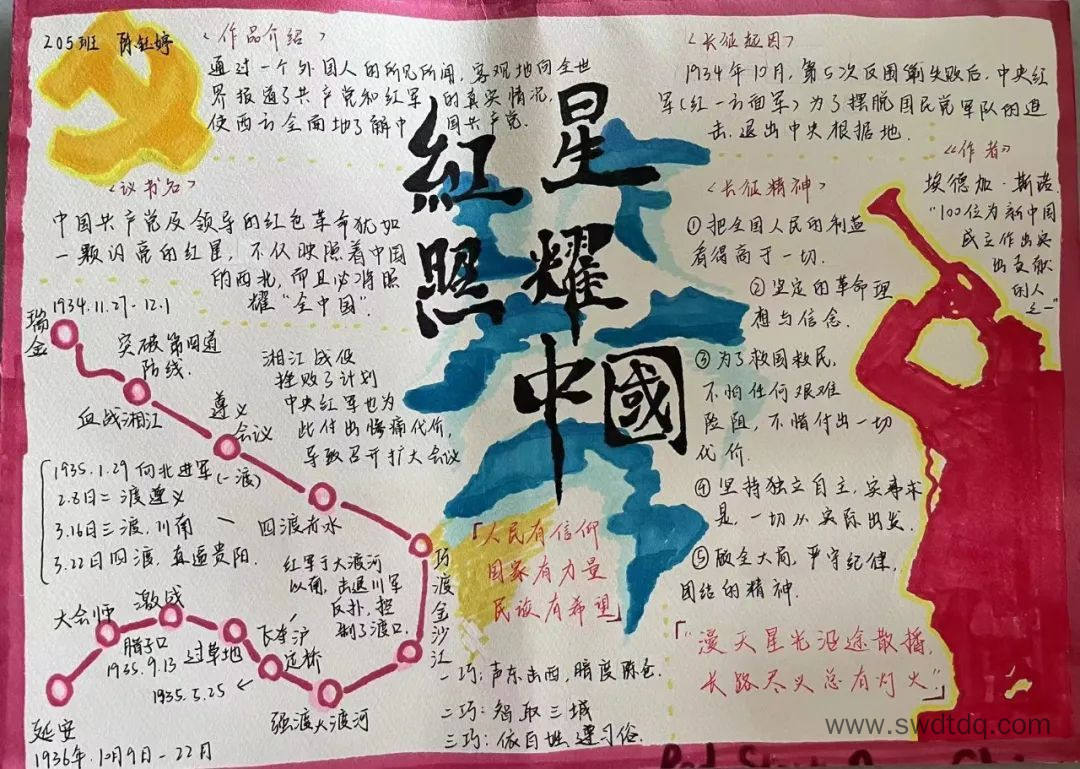 205班 陈钰婷
<作品介绍>
通过一个外国人的所见所闻，客观地向全世
界报道了共产党和红军的真实情况，
使西方全面地了解中国共产党.
<长征起因>
1934年10月，第5次反围剿失败后，中央红
军(红一方面军)为了摆脱国民党军队的追
击，退出中央根据地.
《作者》
埃德加·斯诺
"100位为新中国
成立作出突
出贡献
的人
之一"
紅星
照耀
中國
<议书名>
中国共产党及领导的红色革命犹如
一颗闪亮的红星，不仅映照着中国
的西北，而且必将照
耀"全中国".
<长征精神>
①把全国人民的利益
看得高于一切.
②坚定的革命理
想与信念.
③为了救国救民，
不怕任何艰难
险阻，不惜付出一切
代价.
④坚持独立自主，实事求
是，一切从实际出发.
⑤顾全大局，严守纪律，
团结的精神.
1934.11.27-12.1
瑞金
突破第四道
防线.
血战湘江
湘江战役
挫败了计划
中央红军也为
此付出惨痛代价，
导致召开扩大会议
遵义
会议
1935.1.29向北进军(一渡)
2.8日二渡遵义
3.16日三渡，川南
3.22日四渡，直逼贵阳.
四渡赤水
巧渡金沙江
红军于大渡河
以南，击退川军
反扑，控
制了渡口.
大会师
激战
腊子口
1935.9.13
过草地
飞夺泸
定桥
1935.5.25
强渡大渡河
延安
1936年.10月9日-22月
「人民有信仰
国家有力量
民族有希望」
一巧：声东击西，暗度陈仓.
二巧：智取三城
三巧：依百姓，遵习俗.
「"漫天星光沿途散播，
长路尽义总有灯火."」
www.swdtdq.com
Red Star Over China